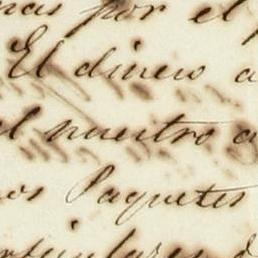 mas por el
El dinero a
el nuestro a
os Paquetes